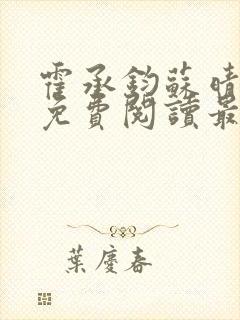 霍承鈞蘇晴
免費閱讀最
葉慶春